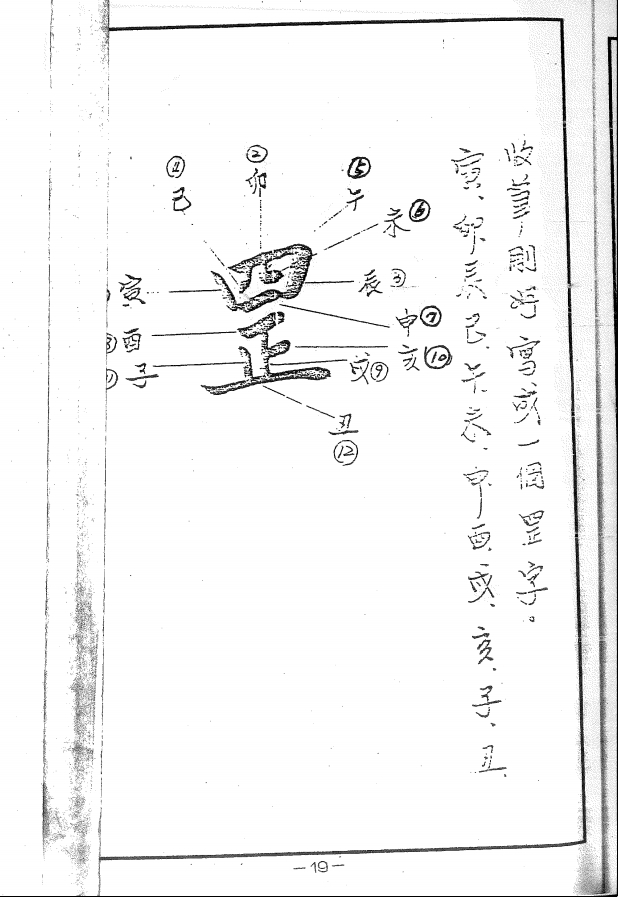 收筆則將寫成一個罡字。
寅、卯辰巳、午未、申酉、戌、亥、子、丑、
④ 巳
② 卯
⑤ 午
未⑥
寅
辰③
罡
申⑦
⑧酉
亥⑩
子
戌⑨
丑
⑫
－19－